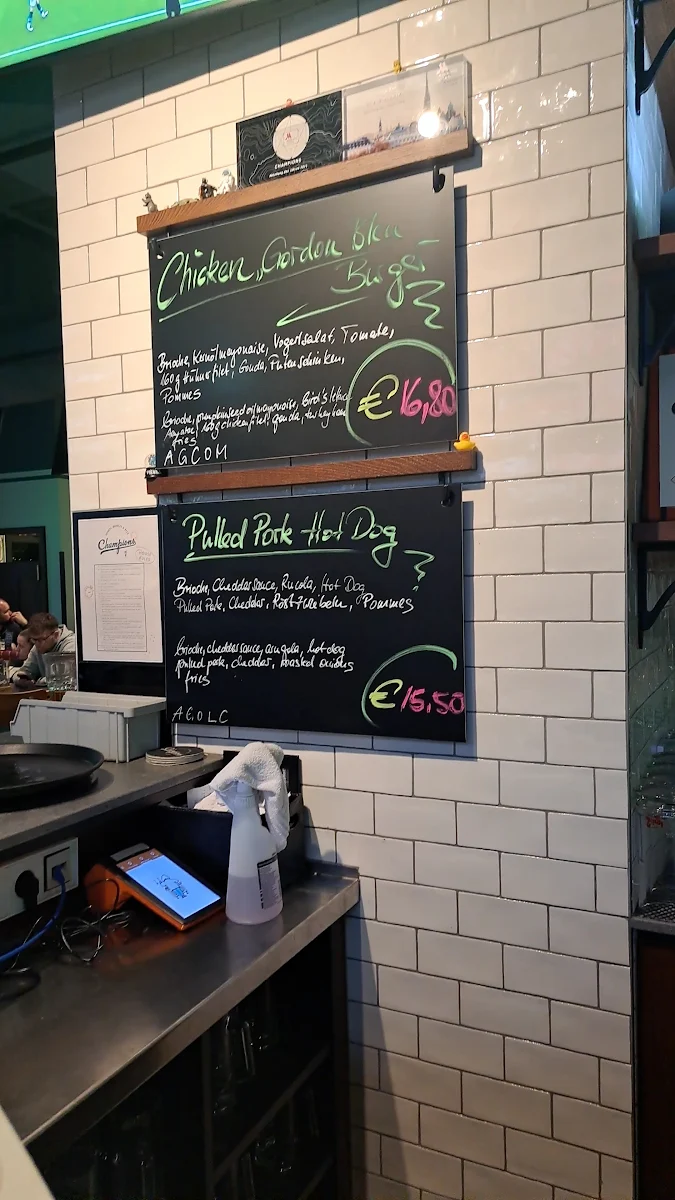 CHAMPIONS
Chicken „Gordon Bleu
Burger
Brioche, Kernölmayonaise, Vogerlsalat, Tomate,
160g Hühnerfilet, Gouda, Putenschinken,
Pommes
€ 16,80
Brioche, pumpkinseed oil mayonaise,
160g chicken filet, gouda,
fries
A G C O M
Champions
Pulled Pork Hot Dog
Brioche, Cheddarsauce, Rucola, Hot Dog
Pulled Pork, Cheddar, Röstzwiebeln, Pommes
Brioche, cheddersauce, arugula, hot dog
pulled pork, cheddar, roasted onions
fries
€ 15,50
A G O L C